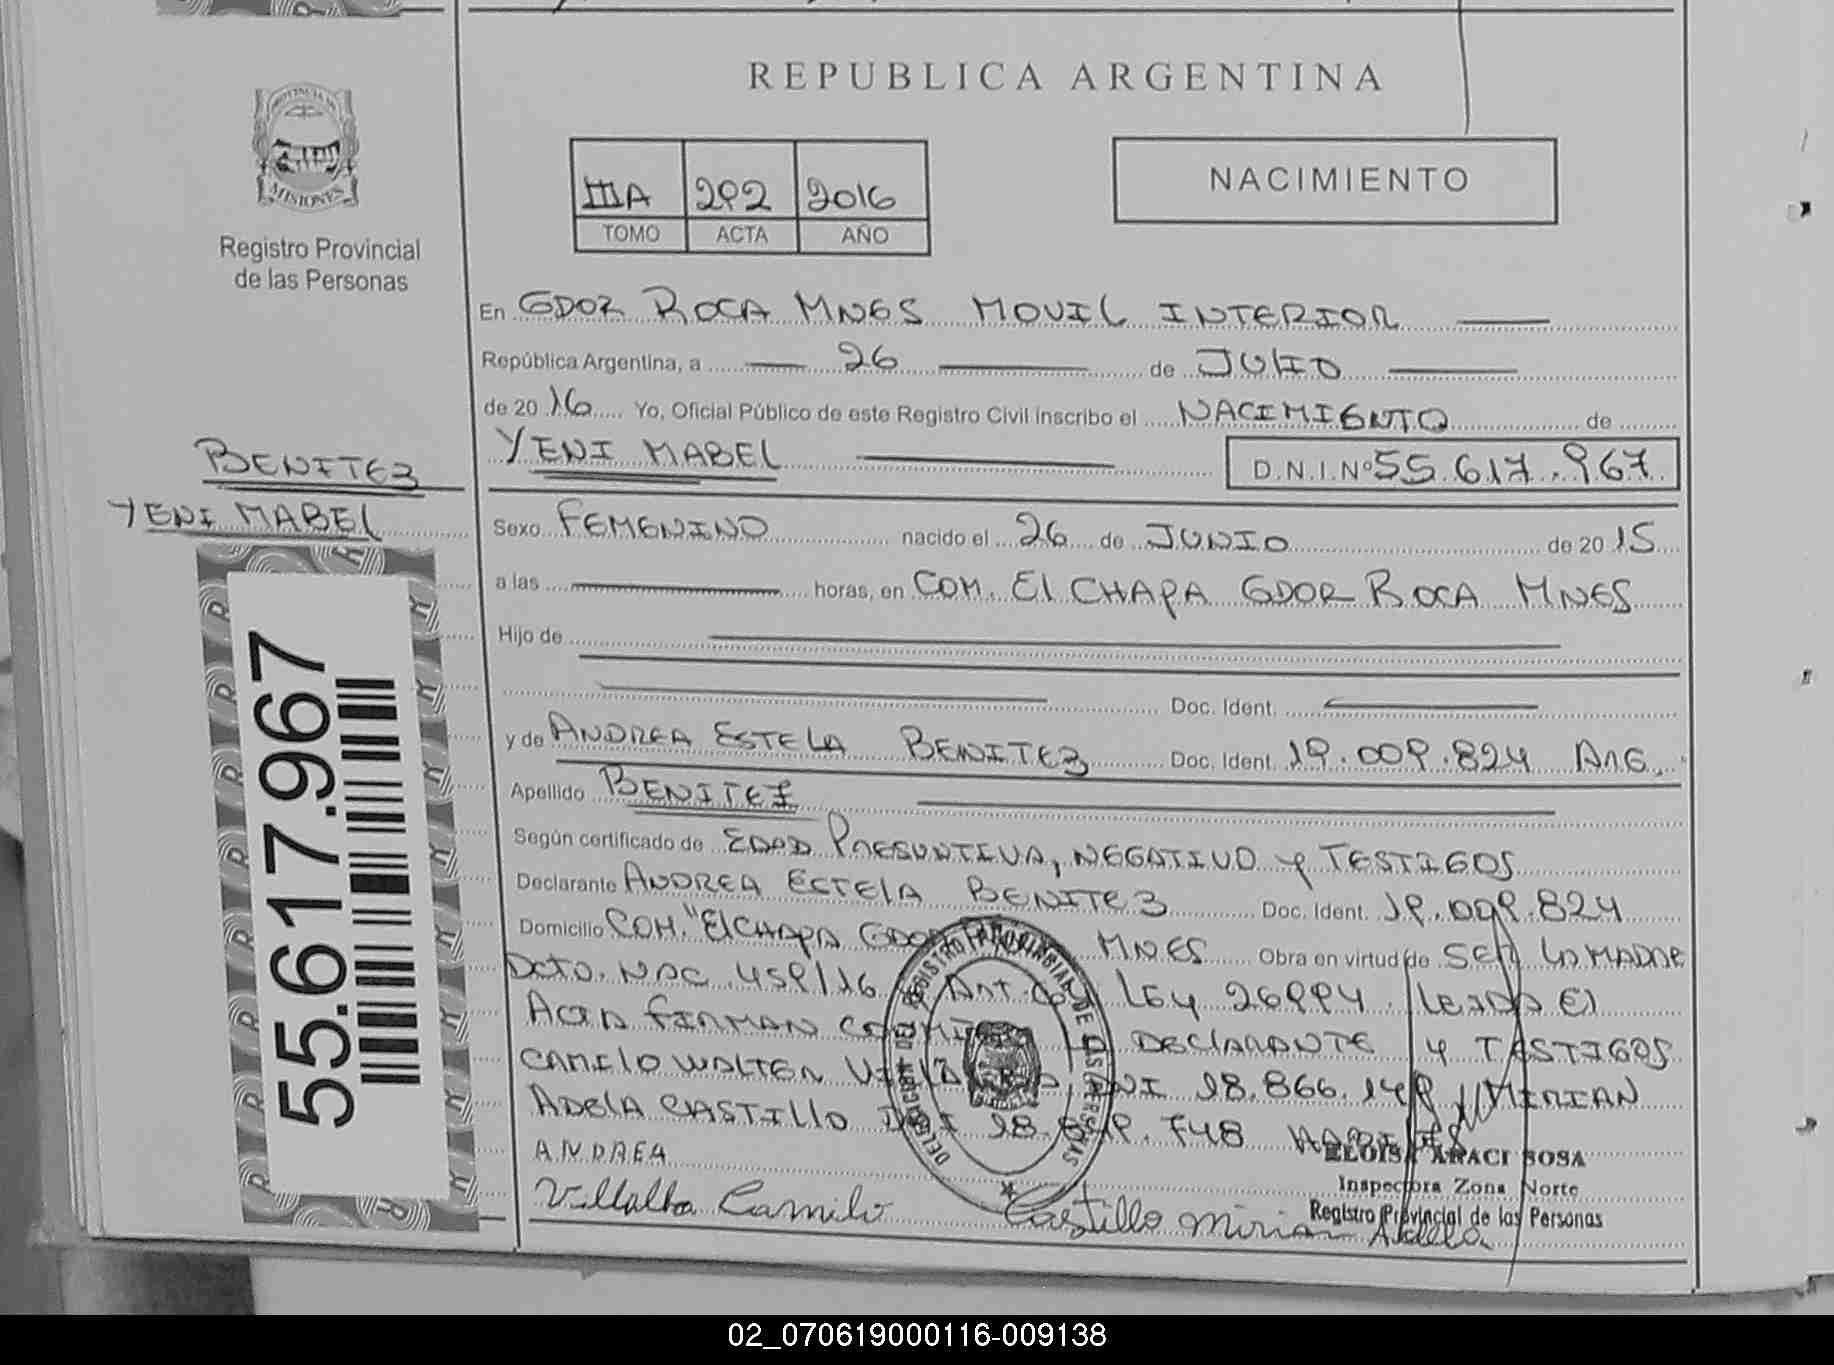 REPUBLICA ARGENTINA
PROVINCIA DE
MISIONES
Registro Provincial
de las Personas
IIIA 292 2016
TOMO ACTA AÑO
NACIMIENTO
En GDOR ROCA MNES MOVIL INTERIOR
República Argentina, a 26 de JULIO
de 20 16 Yo, Oficial Público de este Registro Civil inscribo el NACIMIENTO de
YENI MABEL D.N.I.Nº 55.617.967
BENITEZ
YENI MABEL
Sexo FEMENINO nacido el 26 de JUNIO de 20 15
a las horas, en COM. El CHAPA GDOR ROCA MNES
Hijo de
Doc. Ident.
y de ANDREA ESTELA BENITEZ Doc. Ident. 19.009.824 ARG.
Apellido BENITEZ
Según certificado de EDAD PRESUNTIVA, NEGATIVO y TESTIGOS
Declarante ANDREA ESTElA BENITEZ Doc. Ident. 19.009.824
Domicilio COM. "El CHAPA GDOR MNES Obra en virtud de SER LA MADRE
DCTO. NAC. 459/16 ART. LEY 26994. LEIDA El
ACTA FIRMAN DECLARANTE y TESTIGOS
CAMILO WALTER DNI 18.866.149 y MIRIAN
ADELA CASTILLO 748
ANDREA
Villalba Camilo Castillo Mirian Adela
ELOISA ARACI SOSA
Inspectora Zona Norte
Registro Provincial de las Personas
DELEGACION DEL REGISTRO PROVINCIAL DE LAS PERSONAS
55.617.967
02_070619000116-009138